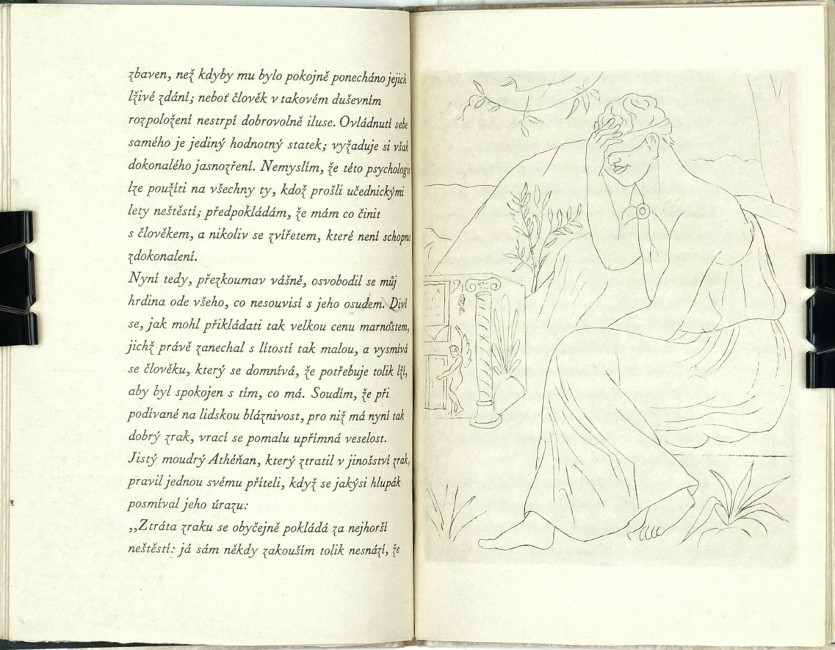 zbaven, než kdyby mu bylo pokojně ponecháno jejich
lživé zdání; neboť člověk v takovém duševním
rozpoložení nestrpí dobrovolně iluse. Ovládnutí sebe
samého je jediný hodnotný statek; vyžaduje si však
dokonalého jasnozření. Nemyslím, že této psychologie
lze použíti na všechny ty, kdož prošli učednickými
lety neštěstí; předpokládám, že mám co činit
s člověkem, a nikoliv se zvířetem, které není schopno
zdokonalení.
Nyní tedy, přezkoumav vášně, osvobodil se můj
hrdina ode všeho, co nesouvisí s jeho osudem. Diví
se, jak mohl přikládati tak velkou cenu marnostem,
jichž právě zanechal s lítostí tak malou, a vysmívá
se člověku, který se domnívá, že potřebuje tolik lží,
aby byl spokojen s tím, co má. Soudím, že při
podívané na lidskou bláznivost, pro niž má nyní tak
dobrý zrak, vrací se pomalu upřímná veselost.
Jistý moudrý Athéňan, který ztratil v jinošství zrak,
pravil jednou svému příteli, když se jakýsi hlupák
posmíval jeho úrazu:
„Ztráta zraku se obyčejně pokládá za nejhorší
neštěstí: já sám někdy zakouším tolik nesnází, že